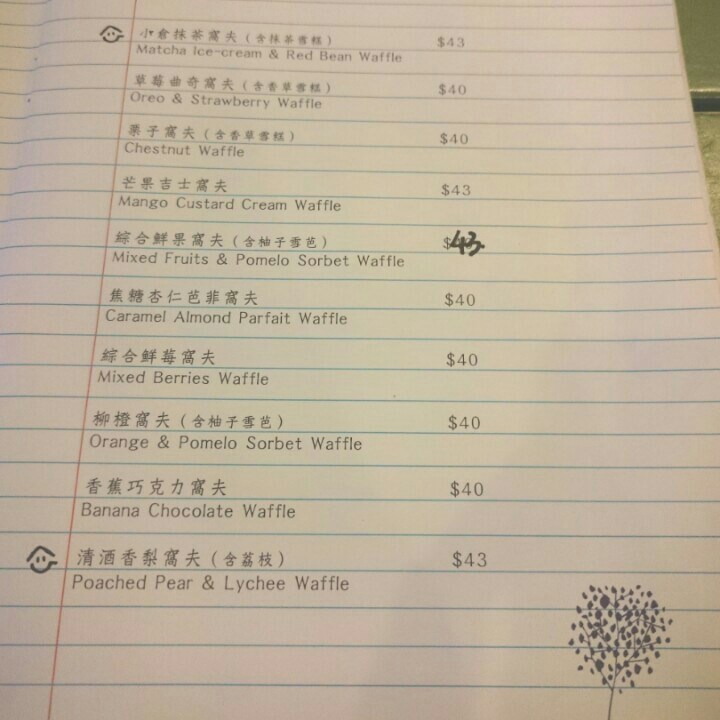 小倉抹茶窩夫（含抹茶雪糕） $43
Matcha Ice-cream & Red Bean Waffle
草莓曲奇窩夫（含香草雪糕） $40
Oreo & Strawberry Waffle
栗子窩夫（含香草雪糕） $40
Chestnut Waffle
芒果吉士窩夫 $43
Mango Custard Cream Waffle
綜合鮮果窩夫（含柚子雪芭） $43
Mixed Fruits & Pomelo Sorbet Waffle
焦糖杏仁芭菲窩夫 $40
Caramel Almond Parfait Waffle
綜合鮮莓窩夫 $40
Mixed Berries Waffle
柳橙窩夫（含柚子雪芭） $40
Orange & Pomelo Sorbet Waffle
香蕉巧克力窩夫 $40
Banana Chocolate Waffle
清酒香梨窩夫（含荔枝） $43
Poached Pear & Lychee Waffle